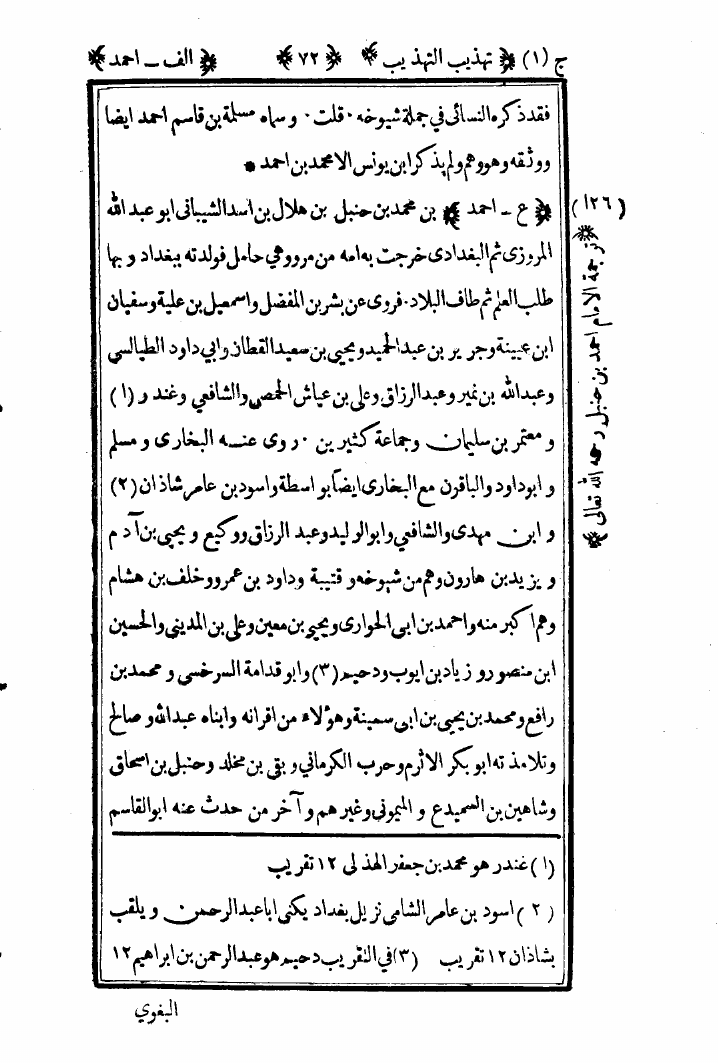 ج (١) ﴿ تهذيب التهذيب ﴾ ﴿ ٧٢ ﴾ ﴿ الف ـ احمد ﴾
فقد ذكره النسائى في جملة شيوخه ٠ قلت ٠ وسماه مسلمة بن قاسم احمد ايضا
ووثقه وهو وهم ولم يذكر ابن يونس الا محمد بن احمد *
(١٢٦) ﴿ ع ـ احمد ﴾ بن محمد بن حنبل بن هلال بن اسد الشيبانى ابو عبدالله
المروزى ثم البغدادى خرجت به امه من مرو وهي حامل فولدته ببغداد وبها
طلب العلم ثم طاف البلاد ٠ فروى عن بشر بن المفضل واسمعيل بن علية وسفيان
ابن عيينة وجرير بن عبد الحميد ويحيى بن سعيد القطان وابي داود الطيالسي
وعبدالله بن نمير وعبد الرزاق وعلى بن عياش الحمصى والشافعي وغندر (١)
ومعتمر بن سليمان وجماعة كثيرين ٠ روى عنه البخارى ومسلم
وابو داود والباقون مع البخارى ايضاً بواسطة واسود بن عامر شاذان (٢)
وابن مهدى والشافعي وابو الوليد وعبد الرزاق ووكيع ويحيى بن آدم
ويزيد بن هارون وهم من شيوخه وقتيبة وداود بن عمرو وخلف بن هشام
وهم اكبر منه واحمد بن ابى الحوارى ويحيى بن معين وعلى بن المدينى والحسين
ابن منصور وزياد بن ايوب ودحيم (٣) وابو قدامة السرخسى ومحمد بن
رافع ومحمد بن يحيى بن ابى سمينة وهؤلاء من اقرانه وابناه عبدالله وصالح
وتلامذته ابو بكر الاثرم وحرب الكرماني وبقى بن مخلد وحنبل بن اسحاق
وشاهين بن السميدع والميمونى وغيرهم وآخر من حدث عنه ابو القاسم
﴿ ترجمة الامام احمد بن حنبل رحمه الله تعالى ﴾
(١) غندر هو محمد بن جعفر الهذلى ١٢ تقريب
(٢) اسود بن عامر الشامى نزيل بغداد يكنى ابا عبد الرحمن ويلقب
بشاذان ١٢ تقريب (٣) في التقريب دحيم هو عبد الرحمن بن ابراهيم ١٢
البغوي